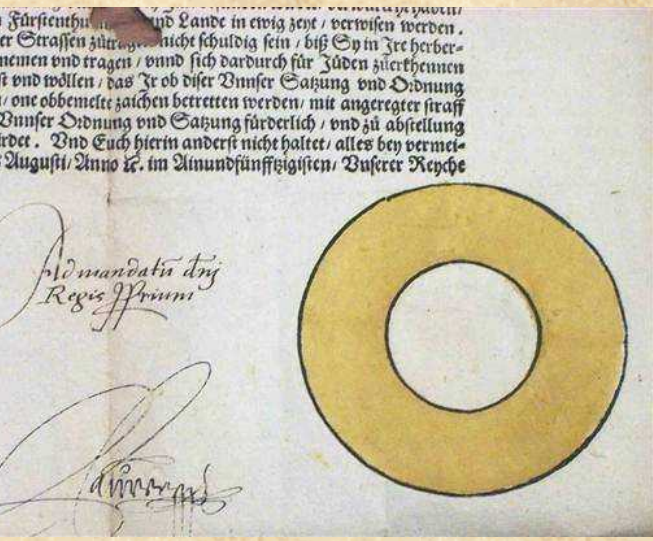 Fürstenthu und Lande in ewig zeyt / verwisen werden.
er Strassen zütragen nicht schuldig sein / biß Sy in Jre herber-
nemen vnd tragen / vnnd sich dardurch für Jüden züerkhennen
st vnd wöllen / das Jr ob diser Vnnser Satzung vnd Ordnung
/ one obbemelte zaichen betretten werden / mit angeregter straff
Vnnser Ordnung vnd Satzung fürderlich / vnd zü abstellung
rdet. Vnd Euch hierin anderst nicht haltet / alles bey vermei-
Augusti / Anno ꝛc. im Ainundfünfftzigisten / Vnserer Reyche
Ad mandatū dnj
Regis prium